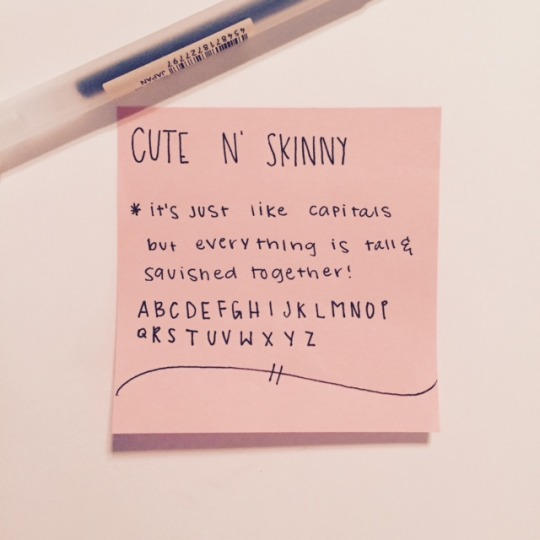 4548718727797
JAPAN
CUTE N' SKINNY
* it's just like capitals
but everything is tall &
sqvished together!
ABCDEFGHIJKLMNOP
QRSTUVWXYZ